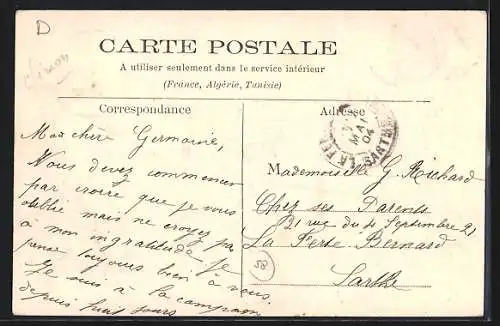 D
CARTE POSTALE
A utiliser seulement dans le service intérieur
(France, Algérie, Tunisie)
Correspondance
Adresse
Ma chère Germaine,
Vous devez commencer
par croire que je vous
oublie mais ne croyez pas
à mon ingratitude je
pense toujours bien à vous.
Je suis à la campagne
depuis huit jours
MAI
04
SARTHE
Mademoiselle G. Richard
Chez ses Parents
21 rue du 4 Septembre 21
La Ferte Bernard
Sarthe